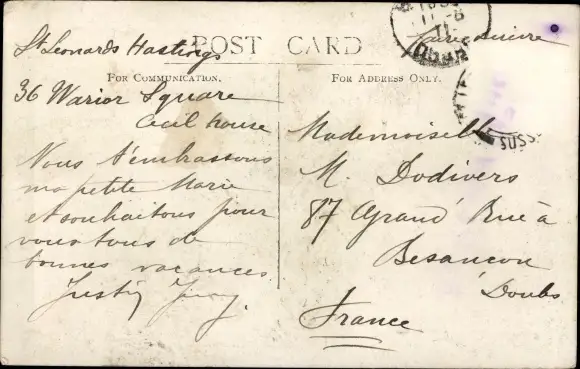 St Leonards Hastings
POST CARD
FOR COMMUNICATION.
FOR ADDRESS ONLY.
36 Warior Square
Cecil House
Nous t'embrassons
ma petite Marie
et souhaitons pour
vous tous de
bonnes vacances
Mademoiselle
M. Dodivers
87 Grand Rue à
Besancon
Doubs
France
SUSS